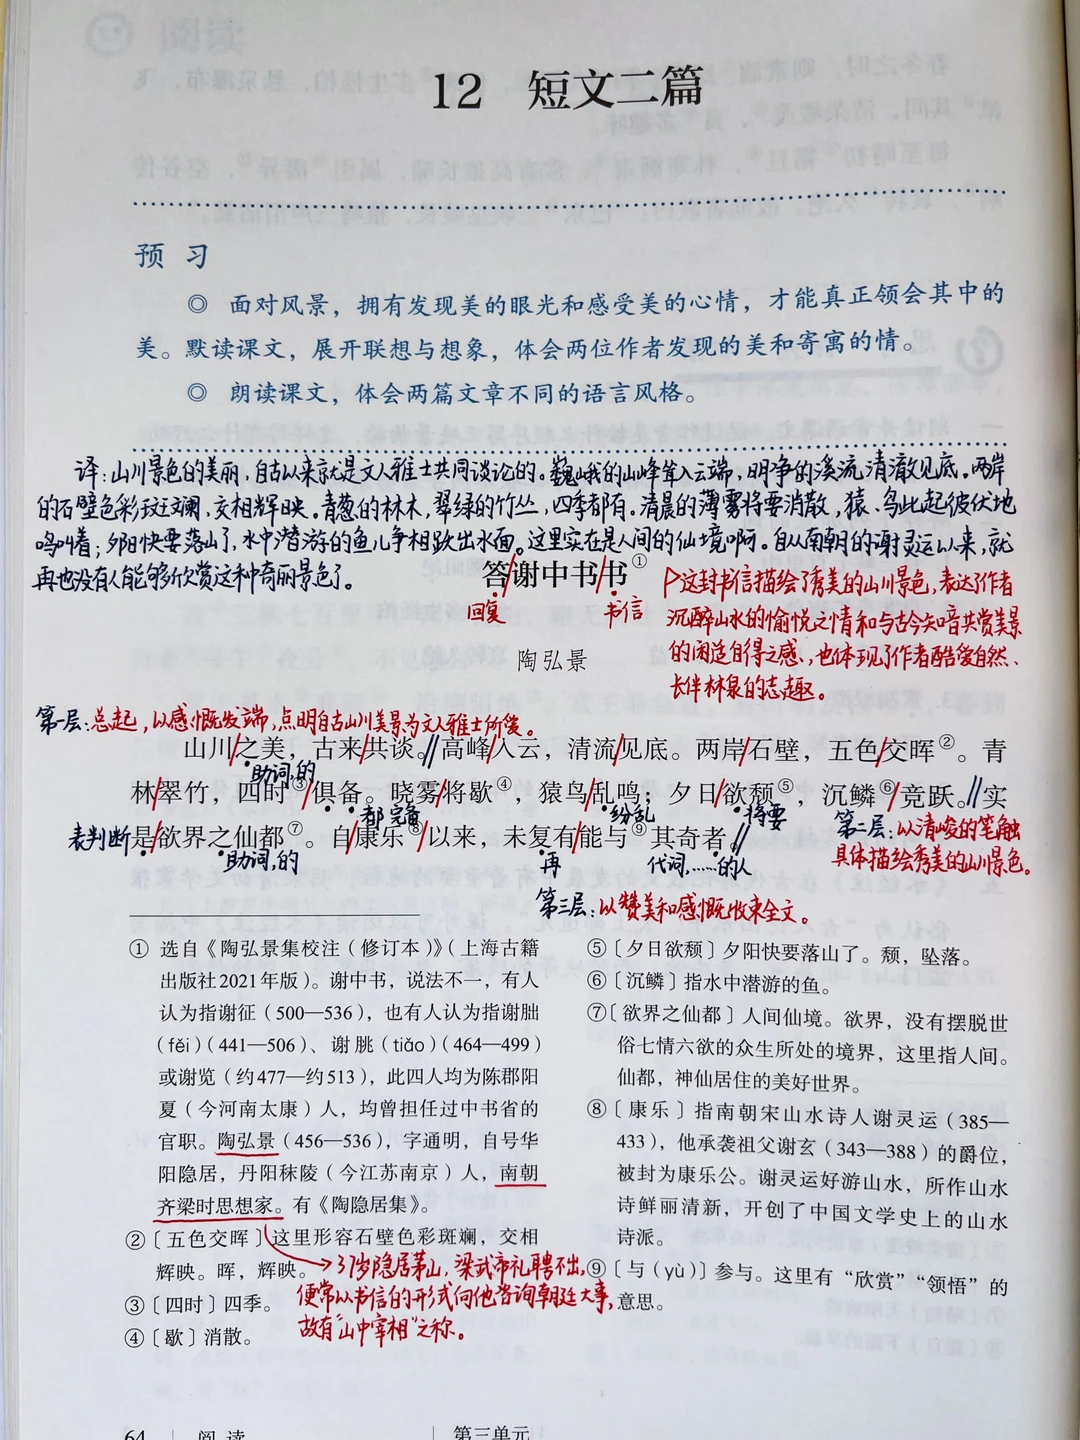 12 短文二篇
预 习
◎ 面对风景，拥有发现美的眼光和感受美的心情，才能真正领会其中的
美。默读课文，展开联想与想象，体会两位作者发现的美和寄寓的情。
◎ 朗读课文，体会两篇文章不同的语言风格。
译：山川景色的美丽，自古以来就是文人雅士共同谈论的。巍峨的山峰耸入云端，明净的溪流清澈见底。两岸
的石壁色彩斑斓，交相辉映。青葱的林木，翠绿的竹丛，四季都有。清晨的薄雾将要消散，猿、鸟此起彼伏地
鸣叫着；夕阳快要落山了，水中潜游的鱼儿争相跃出水面。这里实在是人间的仙境啊。自从南朝的谢灵运以来，就
再也没有人能够欣赏这种奇丽景色了。
答/谢中书/书①
回复
书信
陶弘景
这封书信描绘了秀美的山川景色，表达了作者
沉醉山水的愉悦之情和与古今知音共赏美景
的闲适自得之感，也体现了作者酷爱自然、
长伴林泉的志趣。
第一层：总起，以感慨发端，点明自古山川美景为文人雅士所爱。
山川/之美，古来/共谈。//高峰/入云，清流/见底。两岸/石壁，五色/交晖②。青
助词，的
林/翠竹，四时③/俱备。晓雾/将歇④，猿鸟/乱鸣；夕日/欲颓⑤，沉鳞⑥/竞跃。//实
都 完备
纷乱
将要
表判断
是/欲界之仙都⑦。自/康乐⑧/以来，未复有/能与⑨其奇者。//
助词，的
再
代词，……的人
第二层：以清峻的笔触
具体描绘秀美的山川景色。
第三层：以赞美和感慨收束全文。
① 选自《陶弘景集校注（修订本）》（上海古籍
出版社2021年版）。谢中书，说法不一，有人
认为指谢征（500—536），也有人认为指谢朏
（fěi）（441—506）、谢朓（tiǎo）（464—499）
或谢览（约477—约513），此四人均为陈郡阳
夏（今河南太康）人，均曾担任过中书省的
官职。陶弘景（456—536），字通明，自号华
阳隐居，丹阳秣陵（今江苏南京）人，南朝
齐梁时思想家。有《陶隐居集》。
②〔五色交晖〕这里形容石壁色彩斑斓，交相
辉映。晖，辉映。
③〔四时〕四季。
④〔歇〕消散。
37岁隐居茅山，梁武帝礼聘不出，
便常以书信的形式向他咨询朝廷大事，
故有“山中宰相”之称。
⑤〔夕日欲颓〕夕阳快要落山了。颓，坠落。
⑥〔沉鳞〕指水中潜游的鱼。
⑦〔欲界之仙都〕人间仙境。欲界，没有摆脱世
俗七情六欲的众生所处的境界，这里指人间。
仙都，神仙居住的美好世界。
⑧〔康乐〕指南朝宋山水诗人谢灵运（385—
433），他承袭祖父谢玄（343—388）的爵位，
被封为康乐公。谢灵运好游山水，所作山水
诗鲜丽清新，开创了中国文学史上的山水
诗派。
⑨〔与（yù）〕参与。这里有“欣赏”“领悟”的
意思。
64 阅 读 第三单元